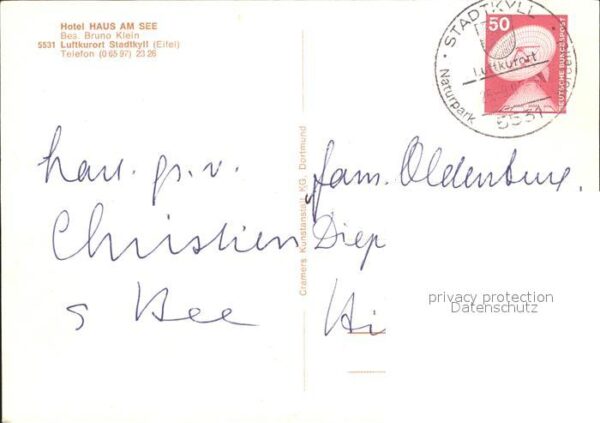 Hotel HAUS AM SEE
Bes. Bruno Klein
5531 Luftkurort Stadtkyll (Eifel)
Telefon (0 65 97) 23 26
STADTKYLL
Luftkurort
Naturpark
5531
50
DEUTSCHE BUNDESPOST
Cramers Kunstanstalt KG, Dortmund
hart. gr. v.
Christien
s Kee
fam. Oldenburg.
Diep
Hi
privacy protection
Datenschutz